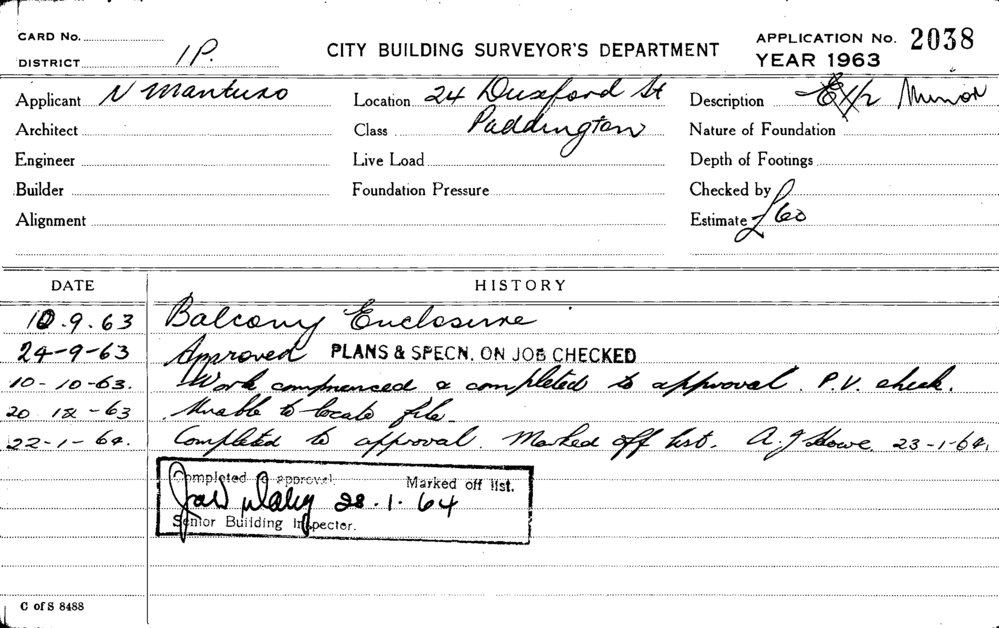 CARD No.
DISTRICT 1P.
CITY BUILDING SURVEYOR'S DEPARTMENT
APPLICATION No. 2038
YEAR 1963
Applicant N Mantuso
Location 24 Duxford St
Description Minor
Architect
Class Paddington
Nature of Foundation
Engineer
Live Load
Depth of Footings
Builder
Foundation Pressure
Checked by
Alignment
Estimate £60
DATE HISTORY
10.9.63 Balcony Enclosure
24-9-63 Approved PLANS & SPECN. ON JOB CHECKED
10-10-63. Work commenced & completed to approval. P.V. check.
20 12-63 Unable to locate file.
22-1-64. Completed to approval. Marked off list. A. J. Howe. 23-1-64.
Completed to approval. Marked off list.
28.1.64
Senior Building Inspector.
C of S 8488